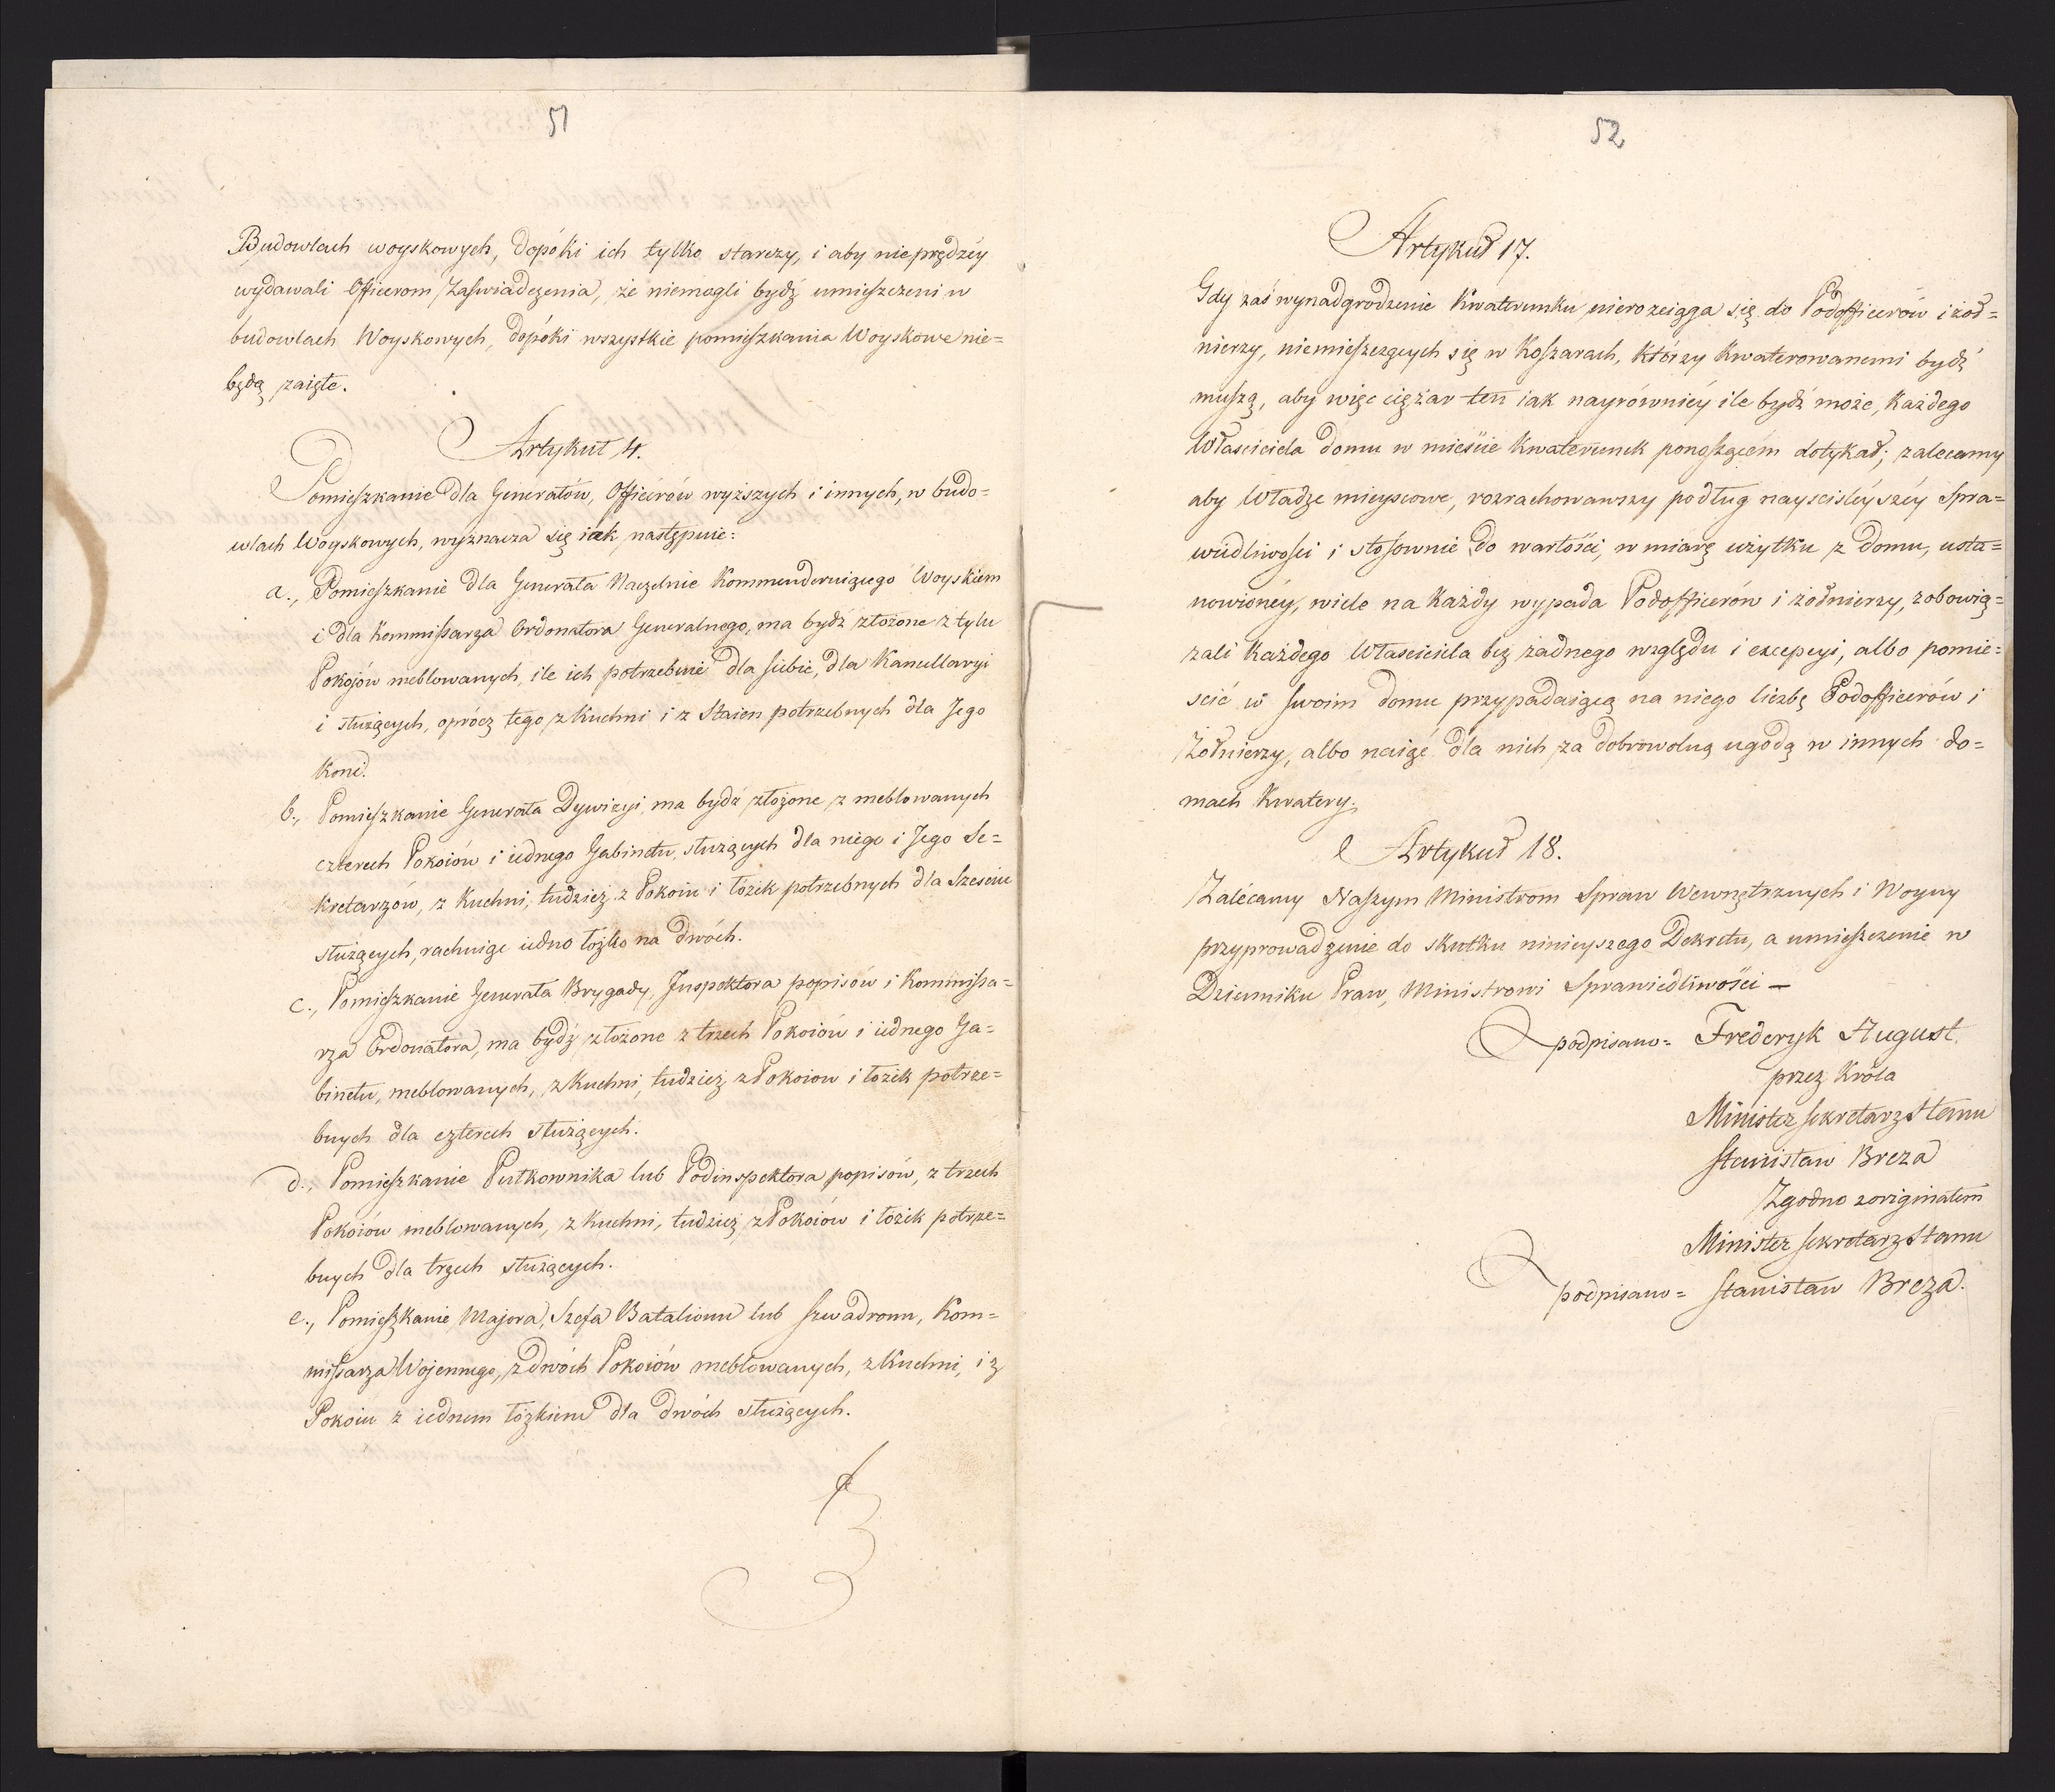 51
Budowlach woyskowych, dopóki ich tylko starczy, i aby nieprędzéy
wydawali Officerom Zaświadczenia, że niemogli bydź umieszczeni w
budowlach Woyskowych, dopóki wszystkie pomieszkania Woyskowe nie=
będą zaięte.
Artykuł 4.
Pomieszkanie dla Generałów, Officérów wyższych i innych, w budo=
wlach Woyskowych, wyznacza się iak następuie:
a., Pomieszkanie dla Generała Naczelnie Kommenderuiącego Woyskiem
i dla Kommissarza Ordonatora Generalnego, ma bydź złożone z tylu
Pokojów meblowanych, ile ich potrzebuie dla siebie, dla Kancellaryi
i służących, oprócz tego z Kuchni i z Staien potrzebnych dla Jego
Koni.
b., Pomieszkanie Generała Dywizyi ma bydź złożone z meblowanych
czterech Pokoiów i iednego Gabinetu, służących dla niego i Jego Se=
kretarzów, z Kuchni, tudzież z Pokoiu i łóżek potrzebnych dla Sześciu
służących, rachuiąc iedno łóżko na dwóch.
c., Pomieszkanie Generała Brygady, Inspektora popisów i Kommissa=
rza Ordonatora, ma bydź złożone z trzech Pokoiów i iednego Ga=
binetu, meblowanych, z Kuchni, tudzież z Pokoiow i łożek potrze=
bnych dla czterech służących.
d., Pomieszkanie Pułkownika lub Podinspektora popisów, z trzech
Pokoiów meblowanych, z Kuchni, tudzież z Pokoiów i łożek potrze=
bnych dla trzech służących.
e., Pomieszkanie Majora, Szefa Batalionu lub Szwadronu, Kom=
missarza Wojennego, z dwóch Pokoiów meblowanych, z Kuchni, i z
Pokoiu z iednem łóżkiem dla dwóch służących.
52
Artykuł 17.
Gdy zaś wynadgrodzenie Kwaterunku nierozciąga się do Podofficerów i żoł=
nierzy, niemieszczących się w Koszarach, którzy Kwaterowanemi bydź
muszą, aby więc ciężar ten iak nayrówniéy ile bydź może, Każdego
Właściciela domu w mieście Kwaterunek ponoszącém dotykał; zalecamy
aby Władze mieyscowe, rozrachowawszy podług nayściśléyszéy Spra=
wiedliwości i stosownie do wartości, w miarę użytku z domu, usta=
nowionéy, wiele na Każdy wypada Podofficerów i żołnierzy, zobowią=
zali Każdego Właściciela bez żadnego względu i excepcyi, albo pomie=
ścić w swoim domu przypadaiącą na niego liczbę Podofficerów i
Żołnierzy, albo naiąć dla nich za dobrowolną ugodą w innych do=
mach Kwatery.
Artykuł 18.
Zalécamy Naszym Ministrom Spraw Wewnętrznych i Woyny
przyprowadzenie do skutku ninieyszego Dekretu, a umieszczenie w
Dzienniku Praw, Ministrowi Sprawiedliwości —
podpisano= Frederyk August.
przez Króla
Minister Sekretarz Stanu
Stanisław Breza
Zgodno z originałem
Minister Sekretarz Stanu
podpisano= Stanisław Breza.